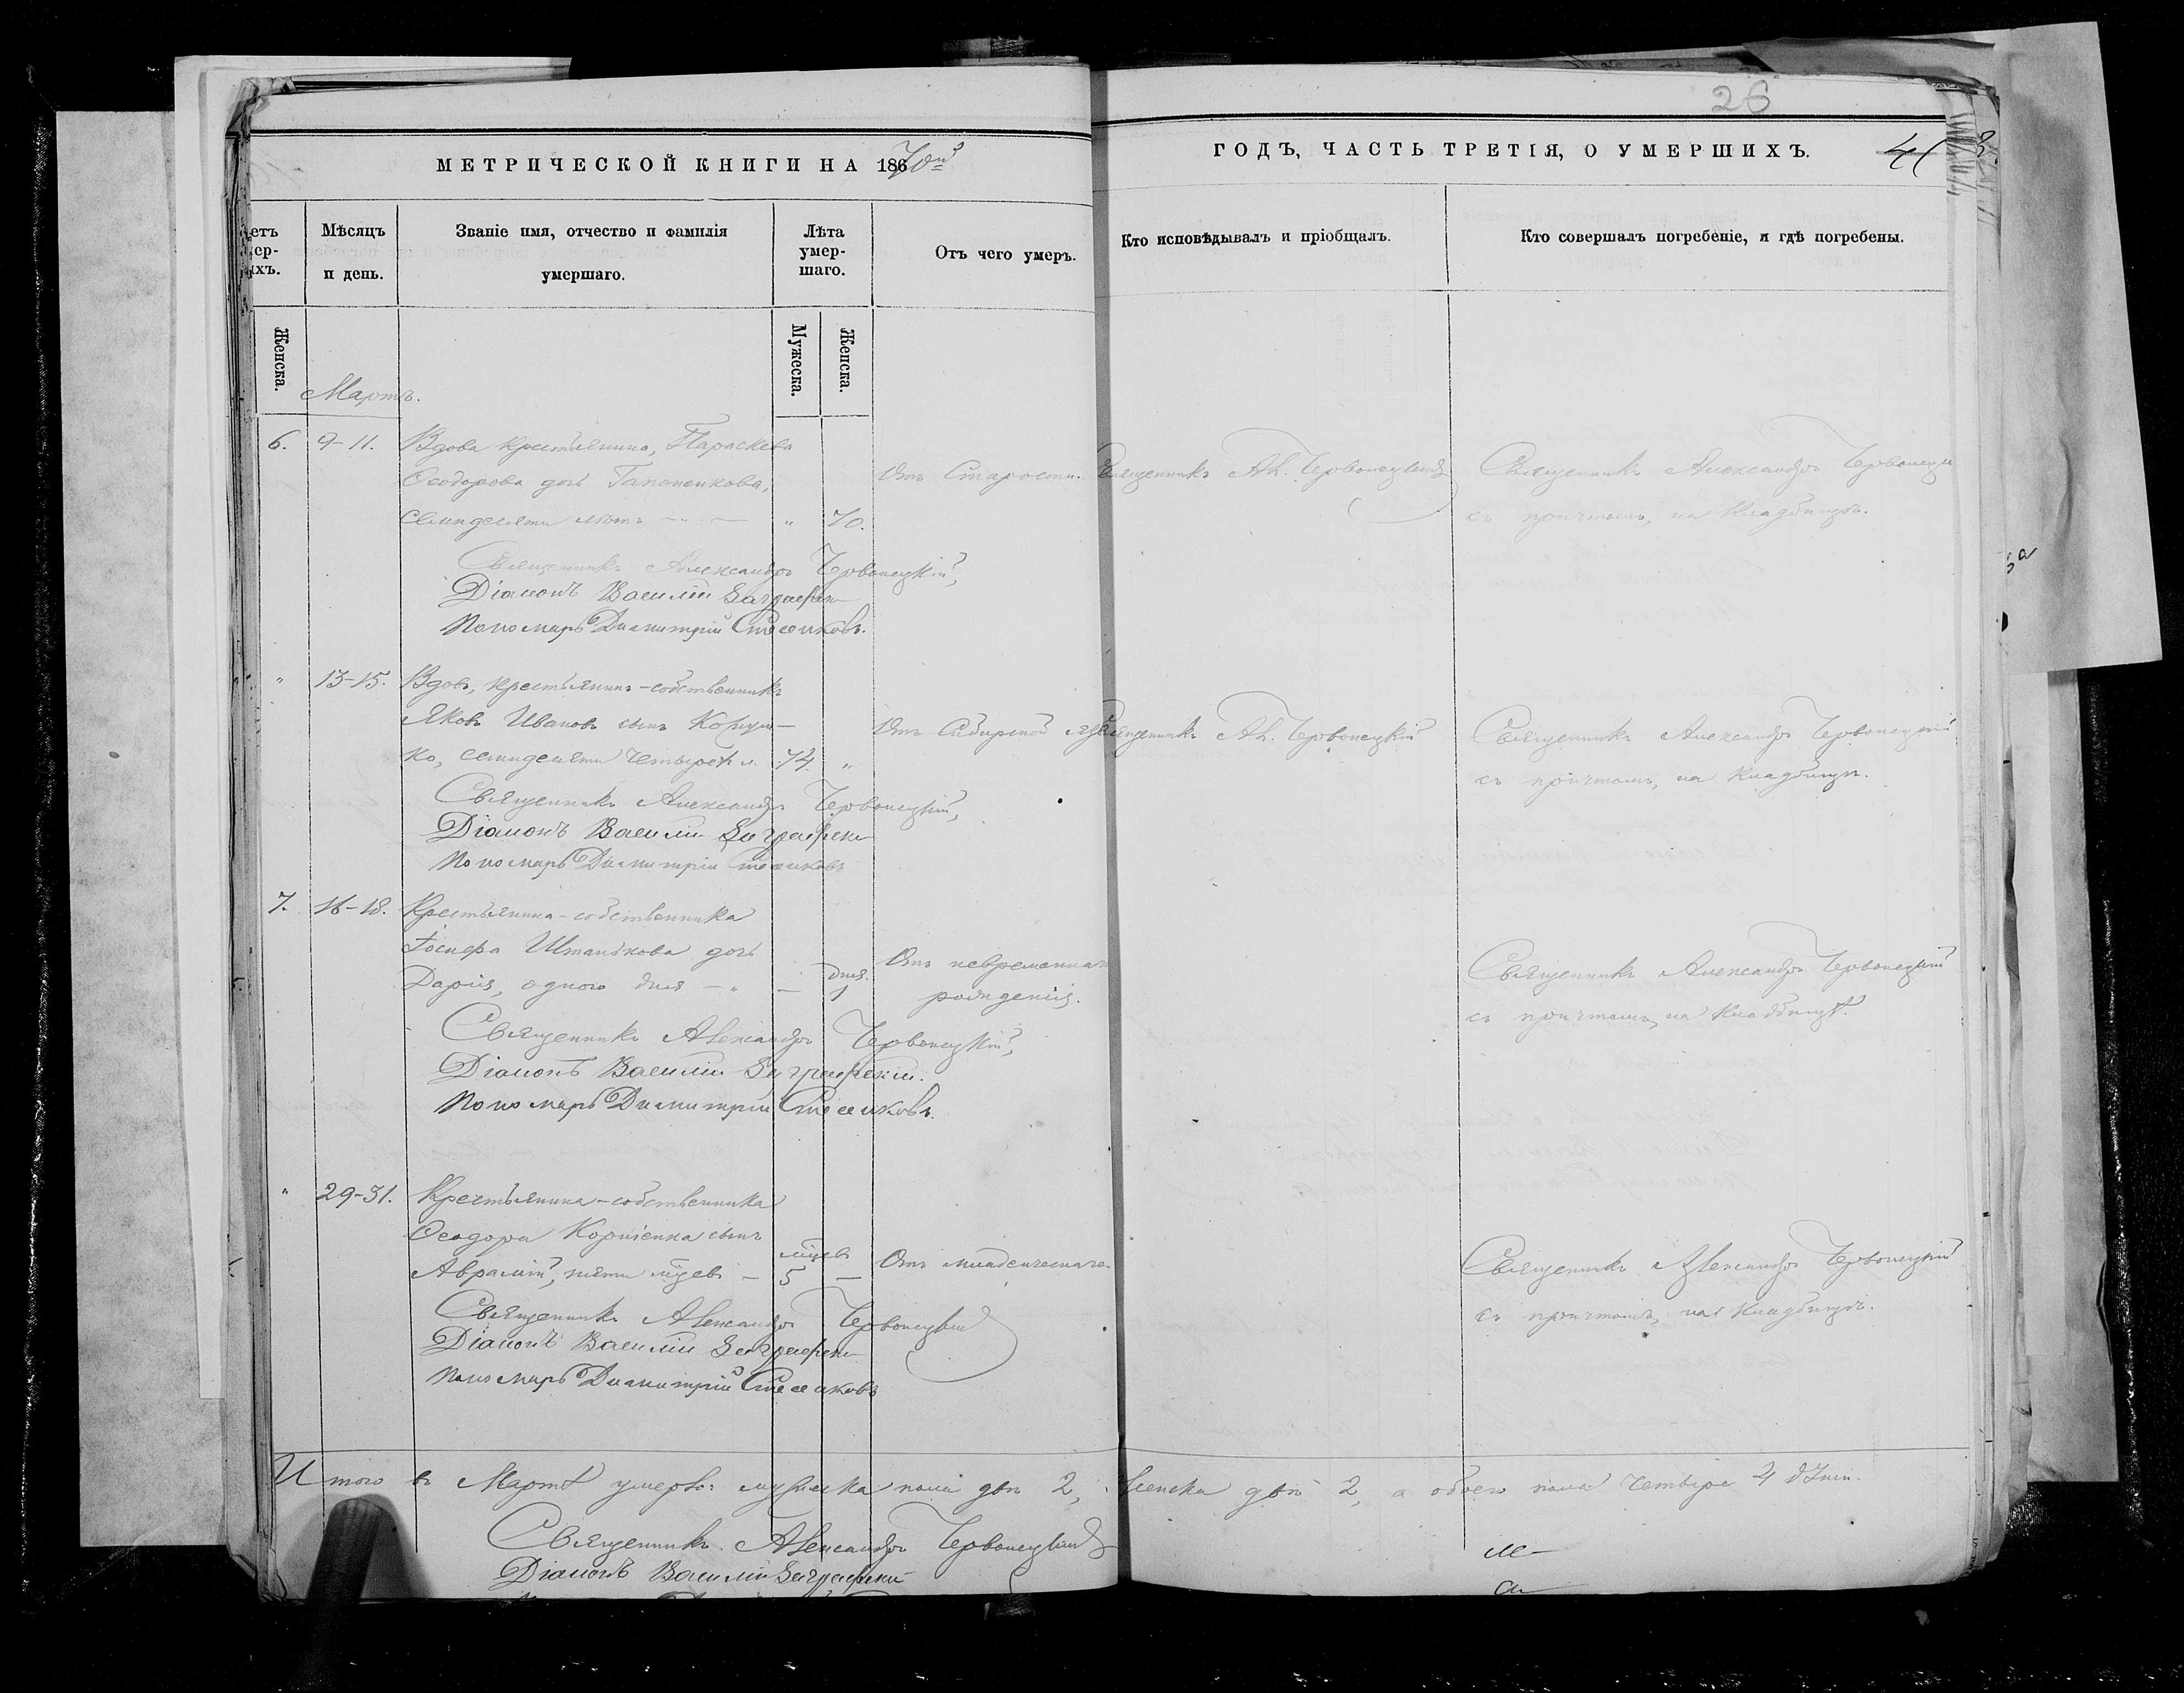 26
МЕТРИЧЕСКОЙ КНИГИ НА 1870й
ГОДЪ, ЧАСТЬ ТРЕТІЯ, О УМЕРШИХЪ.
41
етъ
ер-
ихъ.
Мѣсяцъ
и день.
Званіе имя, отчество и фамилія
умершаго.
Лѣта
умер-
шаго.
Отъ чего умеръ.
Кто исповѣдывалъ и пріобщалъ.
Кто совершалъ погребеніе, и гдѣ погребены.
Женска.
Мужеска.
Женска.
Мартъ.
6. 9-11. Вдова крестьянина, Параскева
Ѳеодорова дочь Гапоненкова,
семидесяти лѣтъ - " - " 70.
Отъ Старости. Священникъ Ал. Червонецкій
Священникъ Александръ Червонецк
съ причтомъ, на Кладбищѣ.
Священникъ Александръ Червонецкій,
Діаконъ Василій
Пономарь Димитрій
" 13-15. Вдовъ, крестьянинъ-собственникъ
Яковъ Ивановъ сынъ
ко, семидесяти четырехъ л. 74. "
Отъ Сибирской Священникъ Ал. Червонецкій
Священникъ Александръ Червонецкій
съ причтомъ, на Кладбищѣ.
Священникъ Александръ Червонецкій,
Діаконъ Василій
Пономарь Димитрій
7. 16-18. Крестьянина-собственника
Іосифа Штанькова дочь
Дарія, одного дня - " - дня. 1
Отъ невременнаго
рожденія.
Священникъ Александръ Червонецкій
съ причтомъ, на Кладбищѣ.
Священникъ Александръ Червонецкій,
Діаконъ Василій
Пономарь Димитрій
" 29-31. Крестьянина-собственника
Ѳеодора Корніенка сынъ
Аврамій, пяти мѣцевъ - мѣцевъ 5 -
Отъ младенческаго
Священникъ Александръ Червонецкій
съ причтомъ, на Кладбищѣ.
Священникъ Александръ Червонецкій
Діаконъ Василій
Пономарь Димитрій
Итого въ Мартѣ умерло: мужеска пола два 2, женска двѣ 2, а обоего пола четыре 4 души.
Священникъ Александръ Червонецкій
Діаконъ Василій